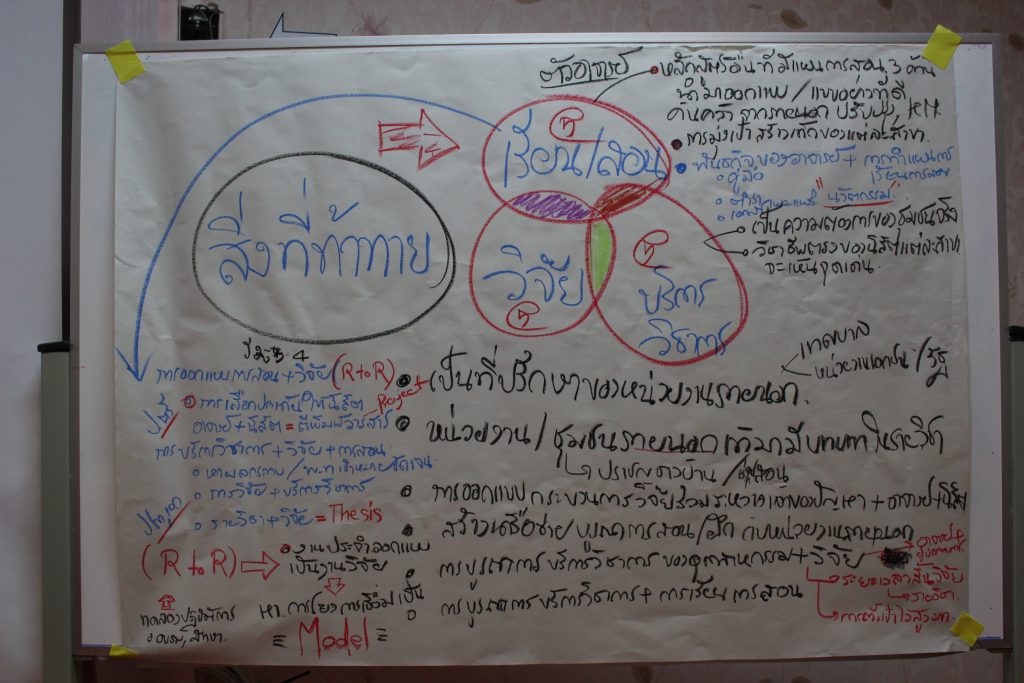 สิ่งที่ท้าทาย
เรียน/สอน
วิจัย
บริการ
วิชาการ
ตัวอาจารย์
หลักสูตรอื่นที่มีแผนการสอน 3 ด้าน
นำมาออกแบบ / แบบอย่างที่ดี
ค้นคว้า จากภายนอก ปรับปรุง KM
การมุ่งเป้า สร้างเด็กของแต่ละสาขา
พันธกิจของอาจารย์ + การทำแผนการ
เรียนการสอน
คู่มือ
ตำรา
"นวัตกรรม"
เป็นความต้องการของชุมชนจริง
วิชาชีพตรงของนิสิตแต่ละสาขา
จะเห็นจุดเด่น
เทศบาล
หน่วยงานเอกชน / รัฐ
การออกแบบการสอน + วิจัย (R to R)
Project
อาจารย์ + นิสิต = ตีพิมพ์วารสาร
การบริการวิชาการ + วิจัย + การสอน
การวิจัย + บริการวิชาการ
รายวิชา + วิจัย = Thesis
(R to R)
งานประจำออกแบบ
เป็นงานวิจัย
หา การโยงการเชื่อม
= Model =
อบรม, ศึกษา
เป็นที่ปรึกษาของหน่วยงานภายนอก.
หน่วยงาน / ชุมชนภายนอก เข้ามามีบทบาทในรายวิชา
ปราชญ์ชาวบ้าน / ผู้สอน
การออกแบบกระบวนการวิจัยร่วมระหว่างเจ้าของปัญหา + อาจารย์ + นิสิต
สร้างเครือข่าย บูรณาการสอน/ฝึก กับหน่วยงานภายนอก
การบูรณาการ บริการวิชาการ ของอุตสาหกรรม + วิจัย
ระยะเวลาสั้นวิจัย
รายวิชา
การบูรณาการบริการวิชาการ + การเรียนการสอน